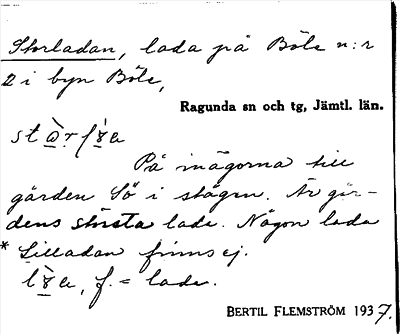 Storladan, lada på Böle n:r
2 i byn Böle,
Ragunda sn och tg, Jämtl. län.
På inägorna till
gården Sö i stägen. Är går-
dens största lada. Någon lada
* Lilladan finns ej.
f. = lada.
BERTIL FLEMSTRÖM 1937.